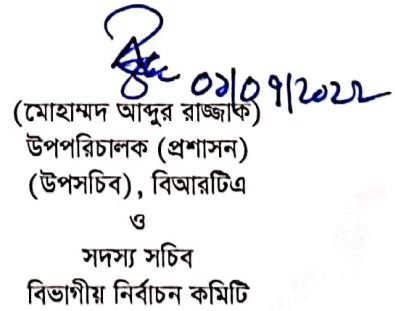 ০১/০৭/২০২২
(মোহাম্মদ আব্দুর রাজ্জাক)
উপপরিচালক (প্রশাসন)
(উপসচিব), বিআরটিএ
ও
সদস্য সচিব
বিভাগীয় নির্বাচন কমিটি